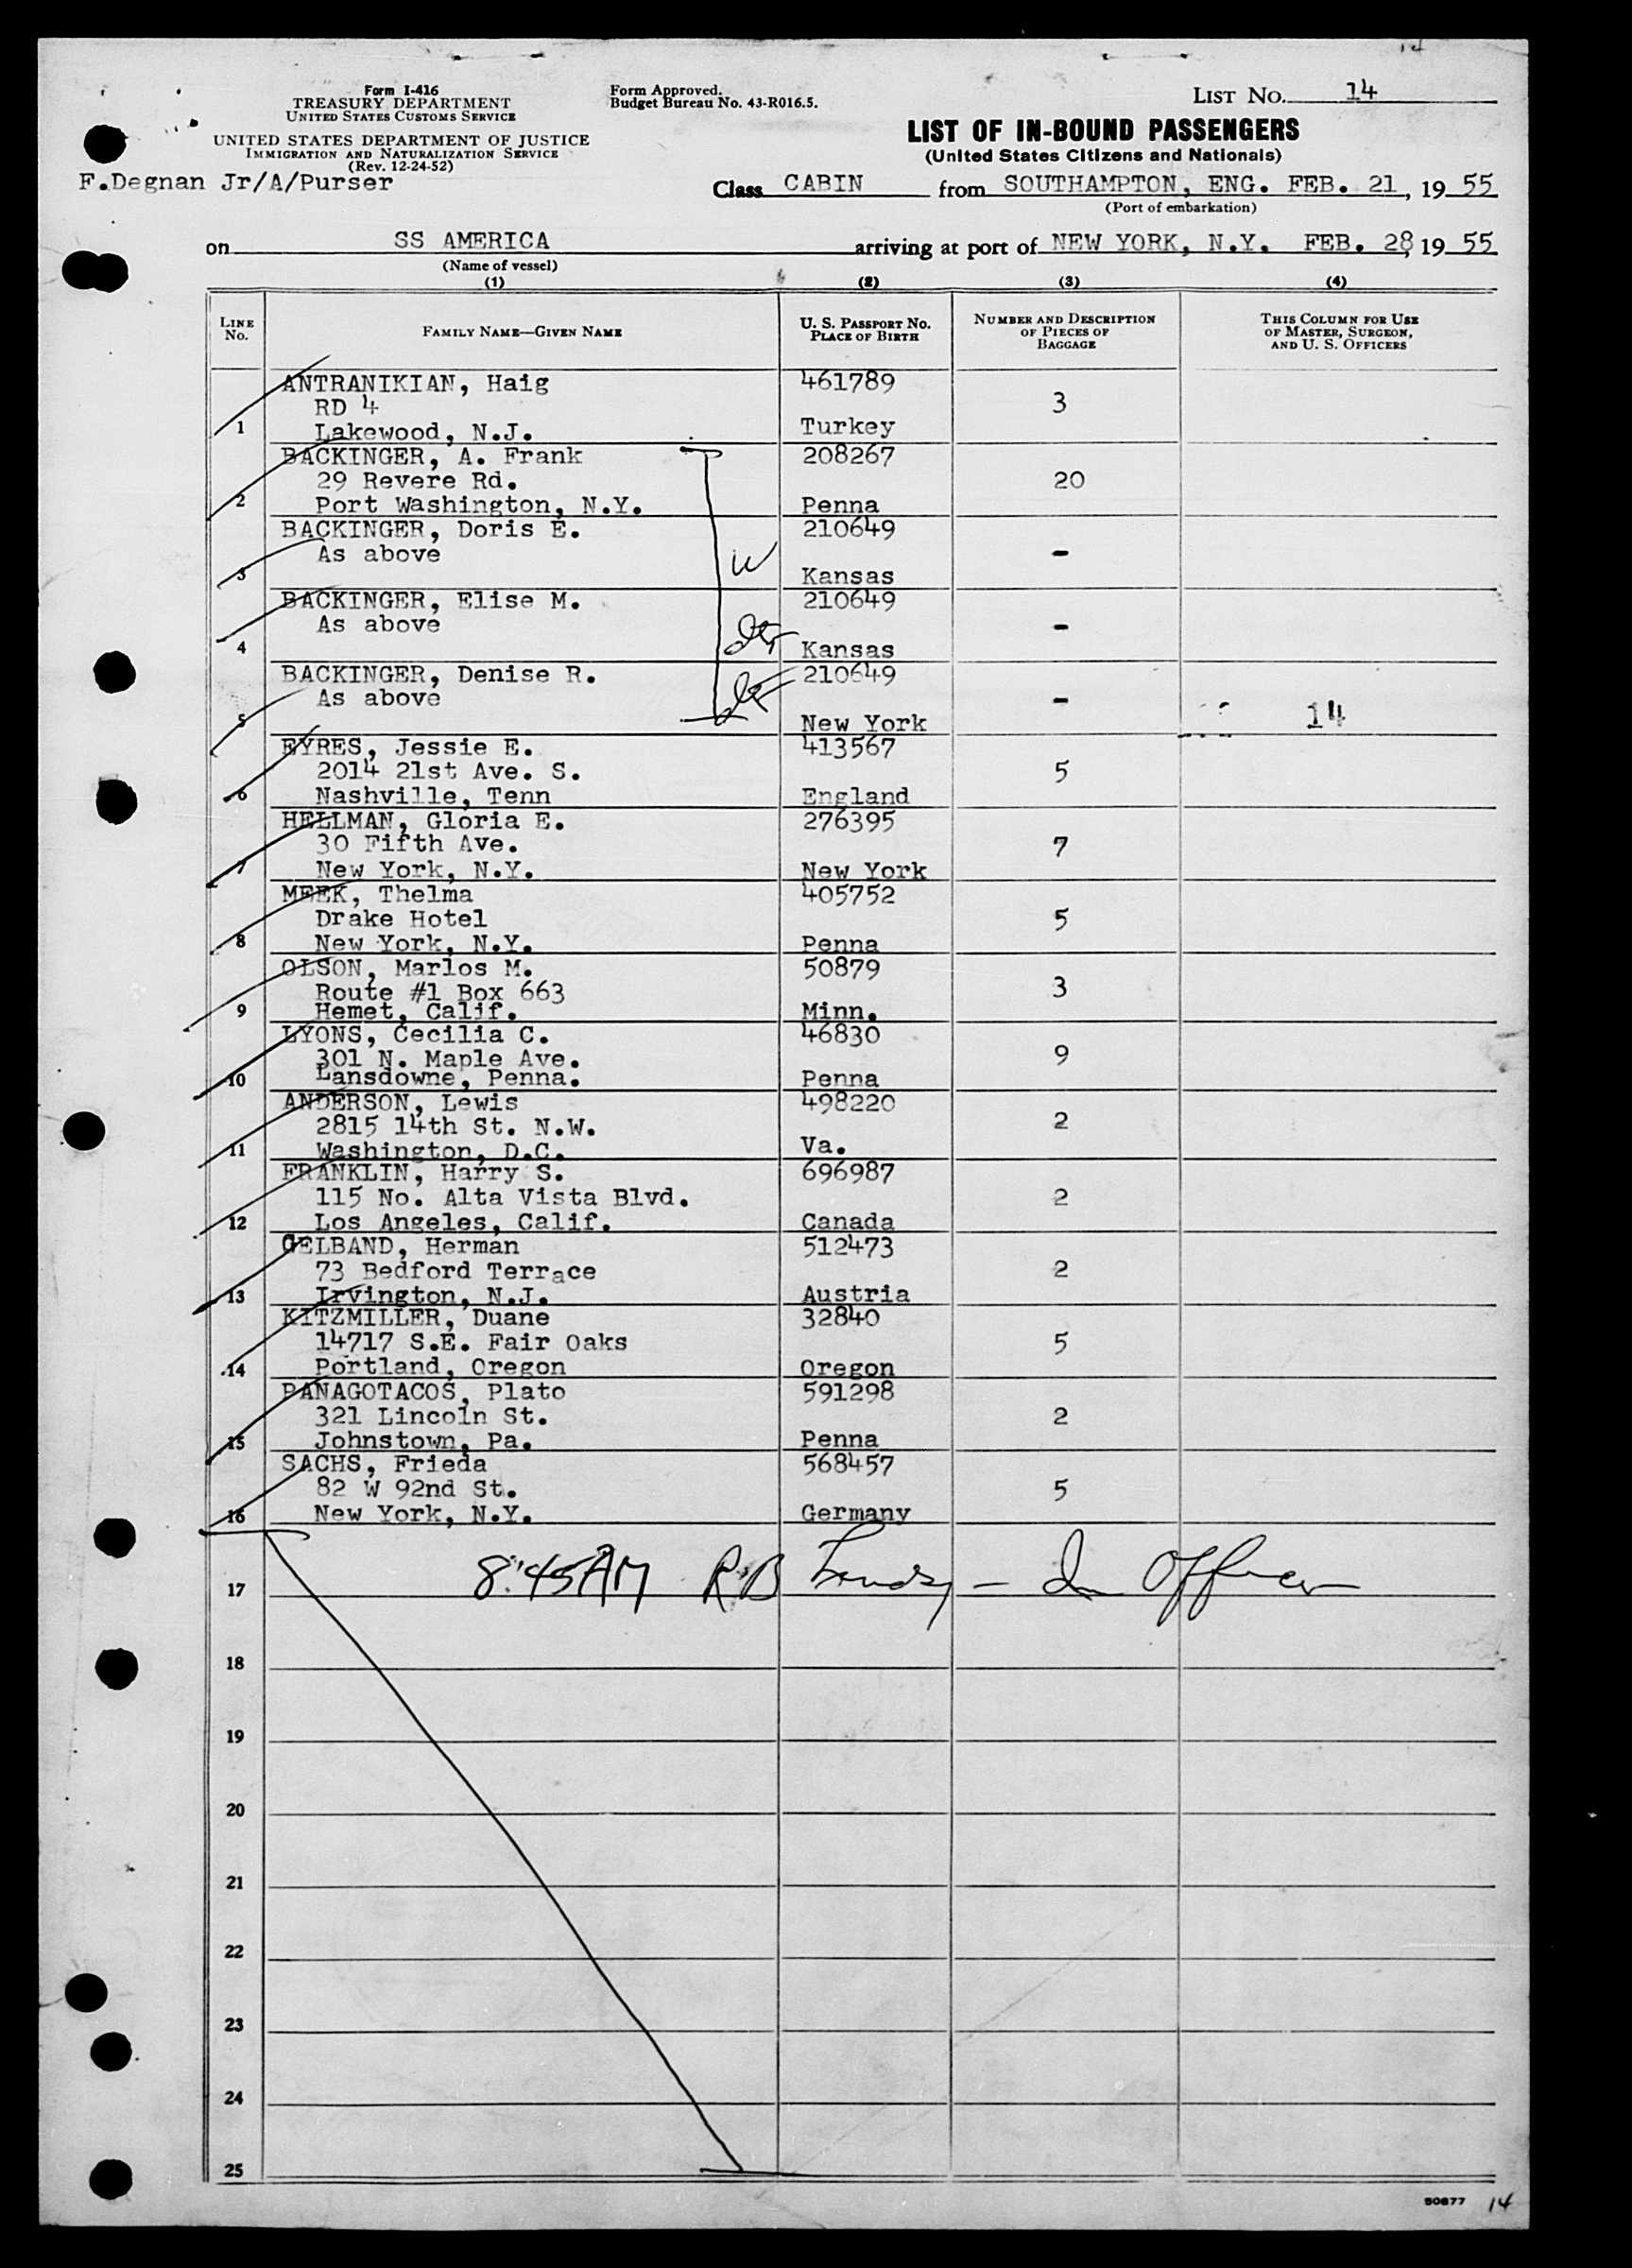 14
Form I-416
TREASURY DEPARTMENT
UNITED STATES CUSTOMS SERVICE
UNITED STATES DEPARTMENT OF JUSTICE
IMMIGRATION AND NATURALIZATION SERVICE
(Rev. 12-24-52)
F.Degnan Jr/A/Purser
Form Approved.
Budget Bureau No. 43-R016.5.
LIST NO. 14
LIST OF IN-BOUND PASSENGERS
(United States Citizens and Nationals)
Class CABIN from SOUTHAMPTON, ENG. FEB. 21, 19 55
(Port of embarkation)
on SS AMERICA arriving at port of NEW YORK, N.Y. FEB. 28, 19 55
(Name of vessel)
(1) (2) (3) (4)
LINE No.
FAMILY NAME—GIVEN NAME
U. S. PASSPORT NO.
PLACE OF BIRTH
NUMBER AND DESCRIPTION
OF PIECES OF
BAGGAGE
THIS COLUMN FOR USE
OF MASTER, SURGEON,
AND U. S. OFFICERS
ANTRANIKIAN, Haig 461789
RD 4 3
1 Lakewood, N.J. Turkey
BACKINGER, A. Frank 208267
29 Revere Rd. 20
2 Port Washington, N.Y. Penna
BACKINGER, Doris E. 210649
As above W -
3 Kansas
BACKINGER, Elise M. 210649
As above -
4 Kansas
BACKINGER, Denise R. 210649
As above -
5 New York 14
EYRES, Jessie E. 413567
2014 21st Ave. S. 5
6 Nashville, Tenn England
HELLMAN, Gloria E. 276395
30 Fifth Ave. 7
7 New York, N.Y. New York
MEEK, Thelma 405752
Drake Hotel 5
8 New York, N.Y. Penna
OLSON, Marlos M. 50879
Route #1 Box 663 3
9 Hemet, Calif. Minn.
LYONS, Cecilia C. 46830
301 N. Maple Ave. 9
10 Lansdowne, Penna. Penna
ANDERSON, Lewis 498220
2815 14th St. N.W. 2
11 Washington, D.C. Va.
FRANKLIN, Harry S. 696987
115 No. Alta Vista Blvd. 2
12 Los Angeles, Calif. Canada
GELBAND, Herman 512473
73 Bedford Terrace 2
13 Irvington, N.J. Austria
KITZMILLER, Duane 32840
14717 S.E. Fair Oaks 5
14 Portland, Oregon Oregon
PANAGOTACOS, Plato 591298
321 Lincoln St. 2
15 Johnstown, Pa. Penna
SACHS, Frieda 568457
82 W 92nd St. 5
16 New York, N.Y. Germany
8:45AM RB - Im Officer
17
18
19
20
21
22
23
24
25
50877 14